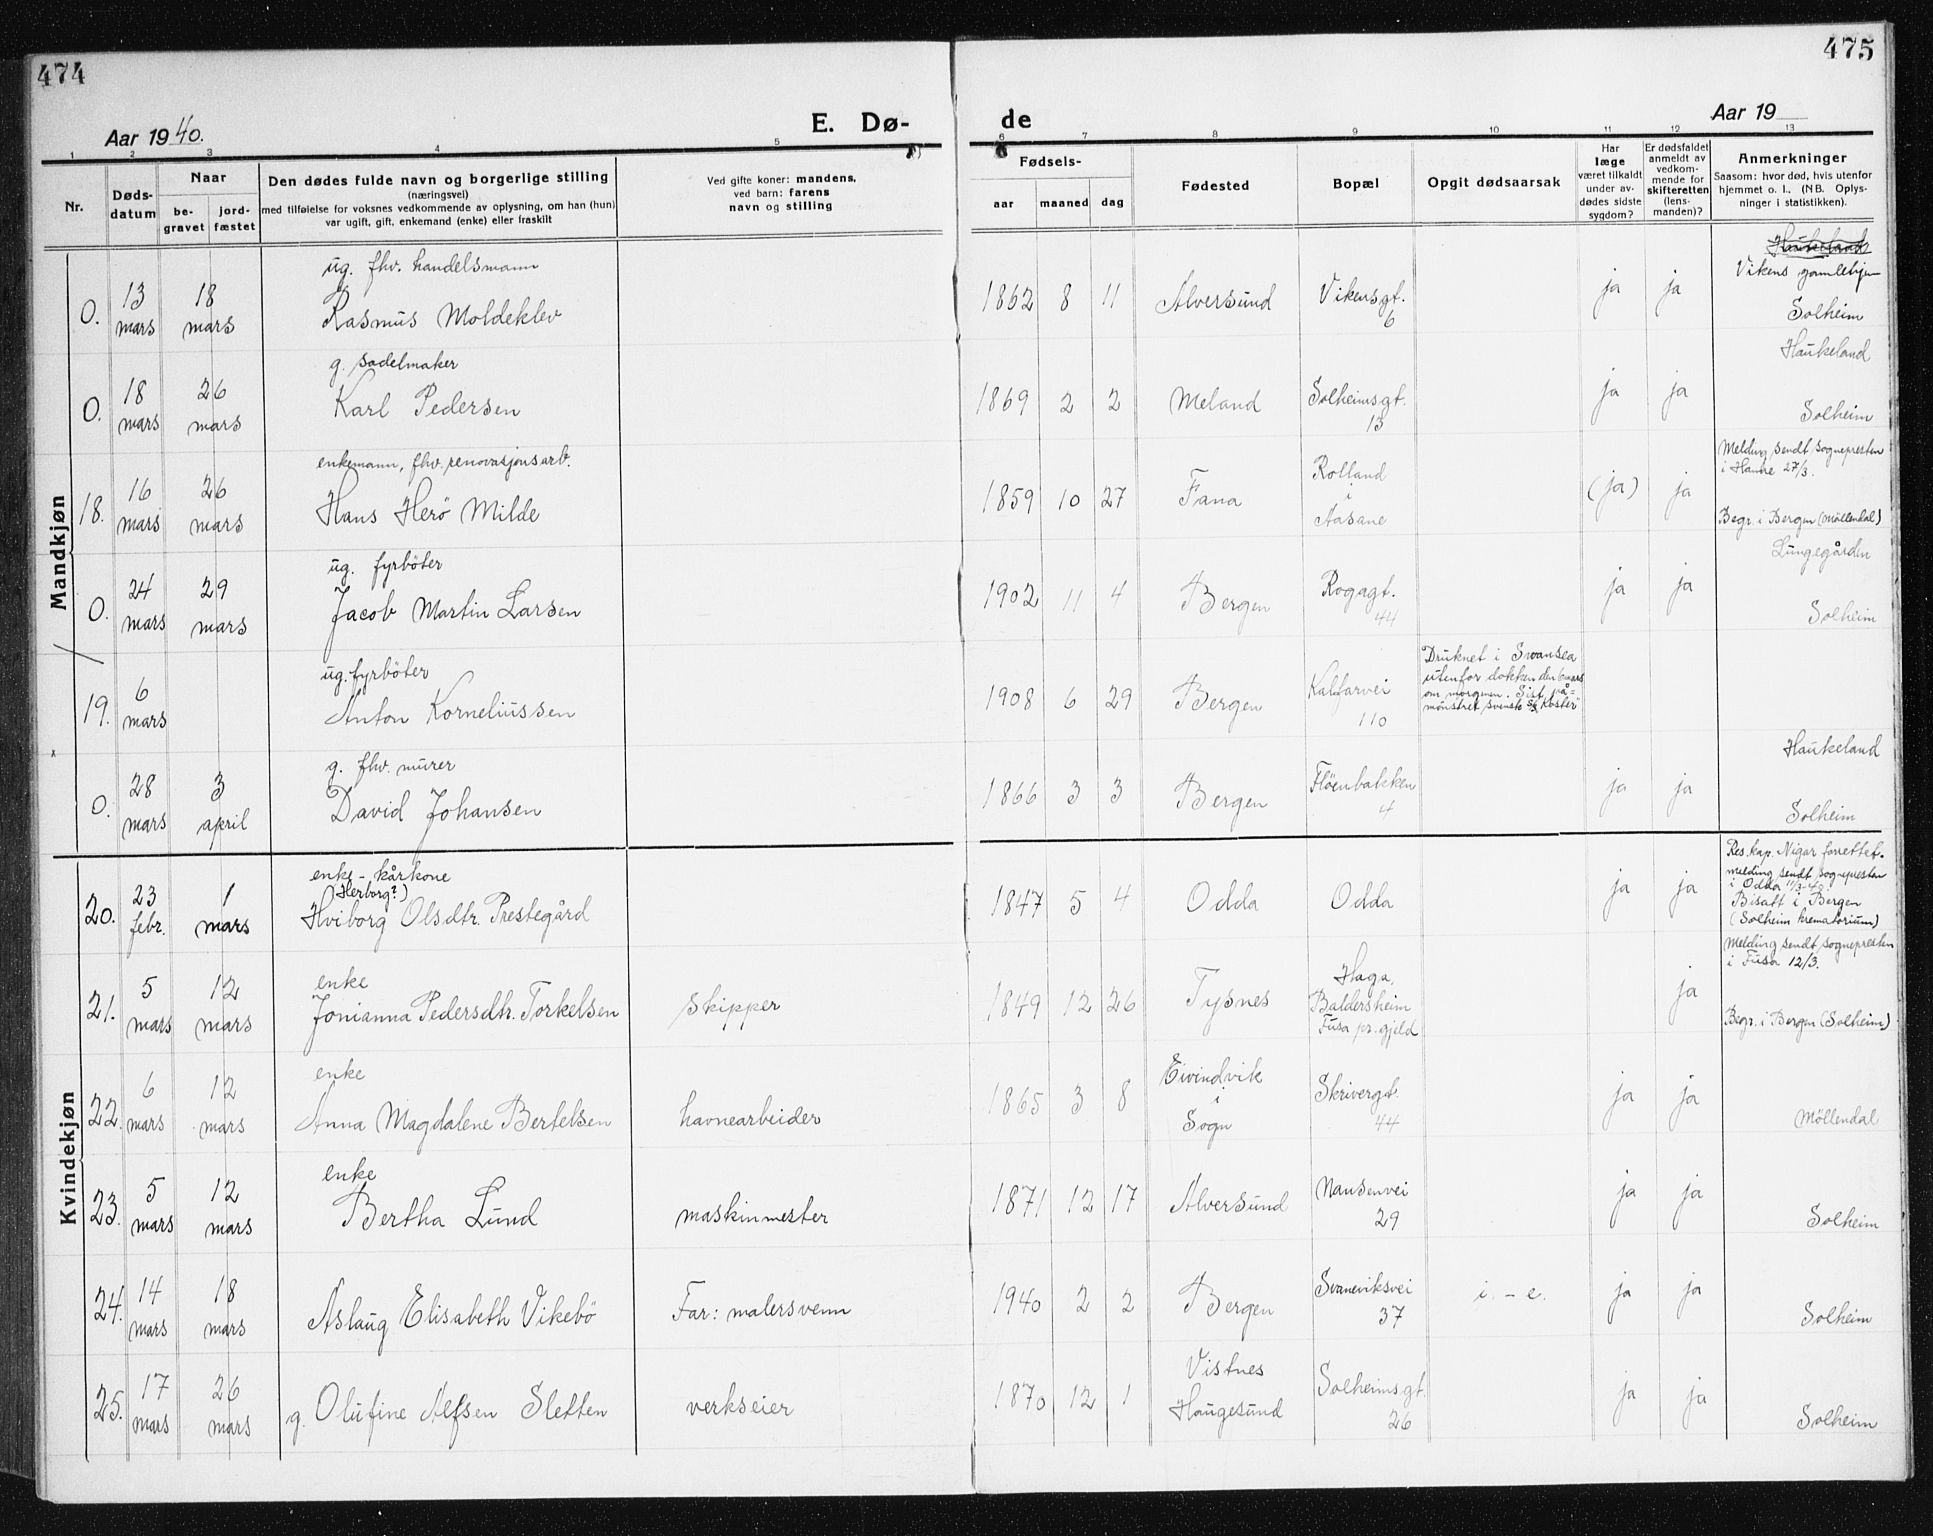 474
475
Aar 1940.
E. Dø-
de
Aar 19
1 2 3 4 5 6 7 8 9 10 11 12 13
Nr.
Døds-
datum
Naar
be-
gravet
jord-
fæstet
Den dødes fulde navn og borgerlige stilling
(næringsvei)
med tilføielse for voksnes vedkommende av oplysning, om han (hun)
var ugift, gift, enkemand (enke) eller fraskilt
Ved gifte koner: mandens,
ved barn: farens
navn og stilling
Fødsels-
aar
maaned
dag
Fødested
Bopæl
Opgit dødsaarsak
Har
læge
været tilkaldt
under av-
dødes sidste
sygdom?
Er dødsfaldet
anmeldt av
vedkom-
mende for
skifteretten
(lens-
manden)?
Anmerkninger
Saasom: hvor død, hvis utenfor
hjemmet o. l.. (NB. Oplys-
ninger i statistikken).
Mandkjøn
ug. fhv. handelsmann
0. 13 mars 18 mars Rasmus Moldeklev 1862 8 11 Alversund Vikensgt. 6 ja ja
Haukeland
Vikens gamlehjem
Solheim
g. sadelmaker
0. 18 mars 26 mars Karl Pedersen 1869 2 2 Meland Solheimsgt. 13 ja ja
Haukeland
Solheim
enkemann, fhv. renovasjonsarb.
18. 16 mars 26 mars Hans Herö Milde 1859 10 27 Fana Rolland i Aasane (ja) ja
Melding sendt sognepresten
i Hamre 27/3.
Begr. i Bergen (Möllendal)
ug. fyrböter
0. 24 mars 29 mars Jacob Martin Larsen 1902 11 4 Bergen Rogagt. 44 ja ja
Lungegården
Solheim
ug. fyrböter
19. 6 mars Anton Korneliussen 1908 6 29 Bergen Kalfarvei 110
Druknet i Swansea
utenfor dokken den 6 mars
om morgenen. Sist på-
mönstret svensk S/S "Koster"
g. fhv. murer
0. 28 mars 3 april David Johansen 1866 3 3 Bergen Flöenbakken 4 ja ja
Haukeland
Solheim
Kvindekjøn
enke - kårkone
(Herborg?)
20. 23 febr. 1 mars Hviborg Olsdtr. Prestegård 1847 5 4 Odda Odda ja ja
Res. kap. Nigar forrettet.
melding sendt sognepresten
i Odda 11/3-40
Bisatt i Bergen
(Solheim krematorium)
enke
21. 5 mars 12 mars Jonianna Pedersdtr. Torkelsen skipper 1849 12 26 Tysnes Haga, Baldersheim Fusa pr. gjeld ja
Melding sendt sognepresten
i Fusa 12/3.
Begr. i Bergen (Solheim)
enke
22. 6 mars 12 mars Anna Magdalene Bertelsen havnearbeider 1865 3 8 Eivindvik i Sogn Skrivergt. 44 ja ja Möllendal
enke
23. 5 mars 12 mars Bertha Lund maskinmester 1871 12 17 Alversund Nansenvei 29 ja ja Solheim
24. 14 mars 18 mars Aslaug Elisabeth Vikebö Far: malersvenn 1940 2 2 Bergen Svaneviksvei 37 i. - e. ja ja Solheim
25. 17 mars 26 mars g. Olufine Alfsen Sletten verkseier 1870 12 1 Vistnes Haugesund Solheimsgt. 26 ja ja Solheim